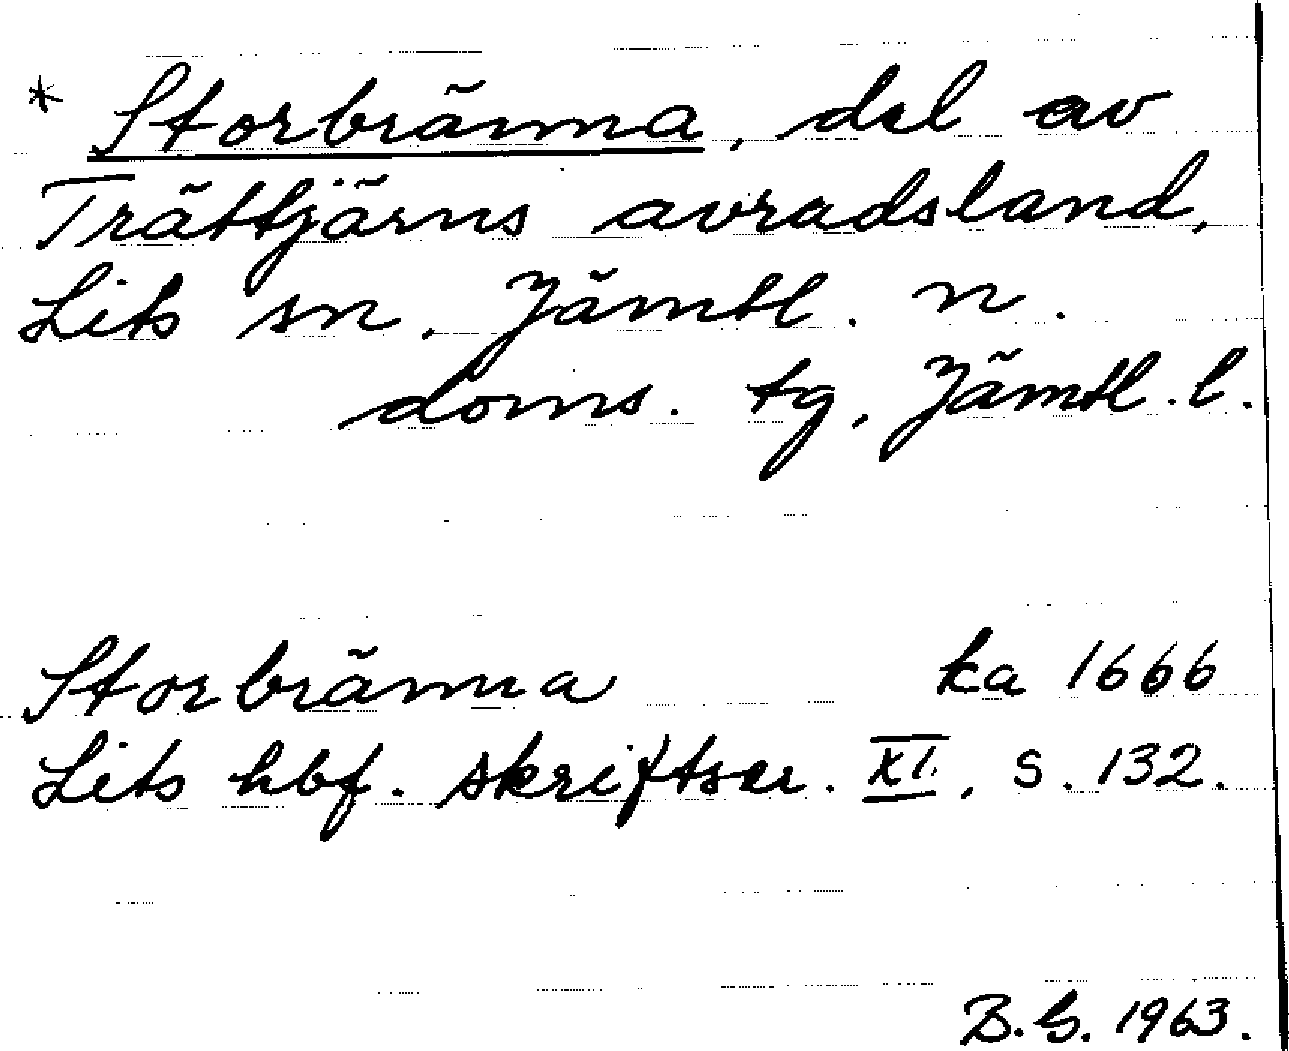 * Storbränna, del av
Trättjärns avradsland,
Lits sn, Jämtl. n.
doms. tg, Jämtl. l.
Storbränna ka 1666
Lits hbf. skriftser. XI, s. 132.
B. G. 1963.